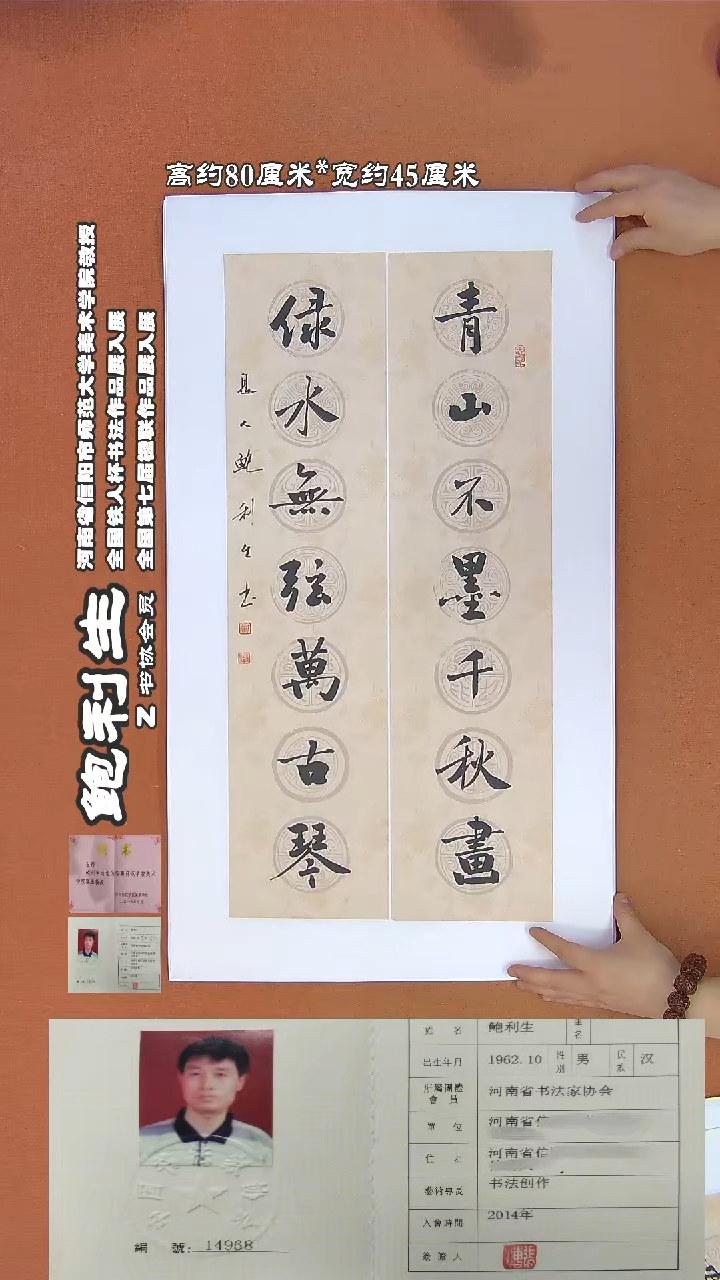 高约80厘米*宽约45厘米
河南省信阳市师范大学美术学院教授
全国铁人杯书法作品展入展
全国第七届楹联作品展入展
鲍利生
Z 书协会员
青山不墨千秋畫
绿水無弦萬古琴
息人鲍利生书
姓 名 鲍利生
出生年月 1962.10 性别 男 民系 汉
所屬團體會員 河南省书法家协会
單 位 河南省信
住 址 河南省信
藝術專長 书法创作
入會時間 2014年
簽發人
編 號: 14968